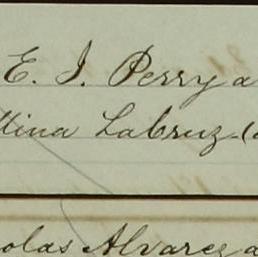 E. J. Perry a
ttina Labruz (
olas Alvarez a